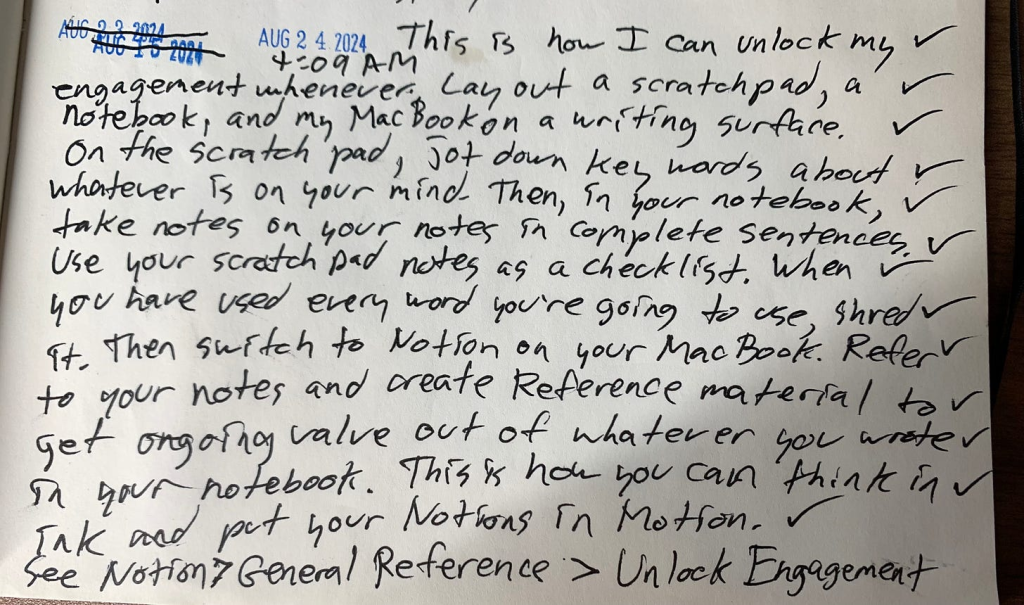 AUG 23 2024
AUG 15 2024
AUG 24 2024 This is how I can unlock my ✓
4:09 AM
engagement whenever. Lay out a scratchpad, a ✓
notebook, and my MacBook on a writing surface. ✓
On the scratch pad, jot down key words about ✓
whatever is on your mind. Then, in your notebook, ✓
take notes on your notes in complete sentences. ✓
Use your scratch pad notes as a checklist. When ✓
you have used every word you're going to use, shred ✓
it. Then switch to Notion on your MacBook. Refer ✓
to your notes and create Reference material to ✓
get ongoing value out of whatever you wrote ✓
in your notebook. This is how you can think in ✓
Ink and put your Notions in Motion. ✓
See Notion > General Reference > Unlock Engagement